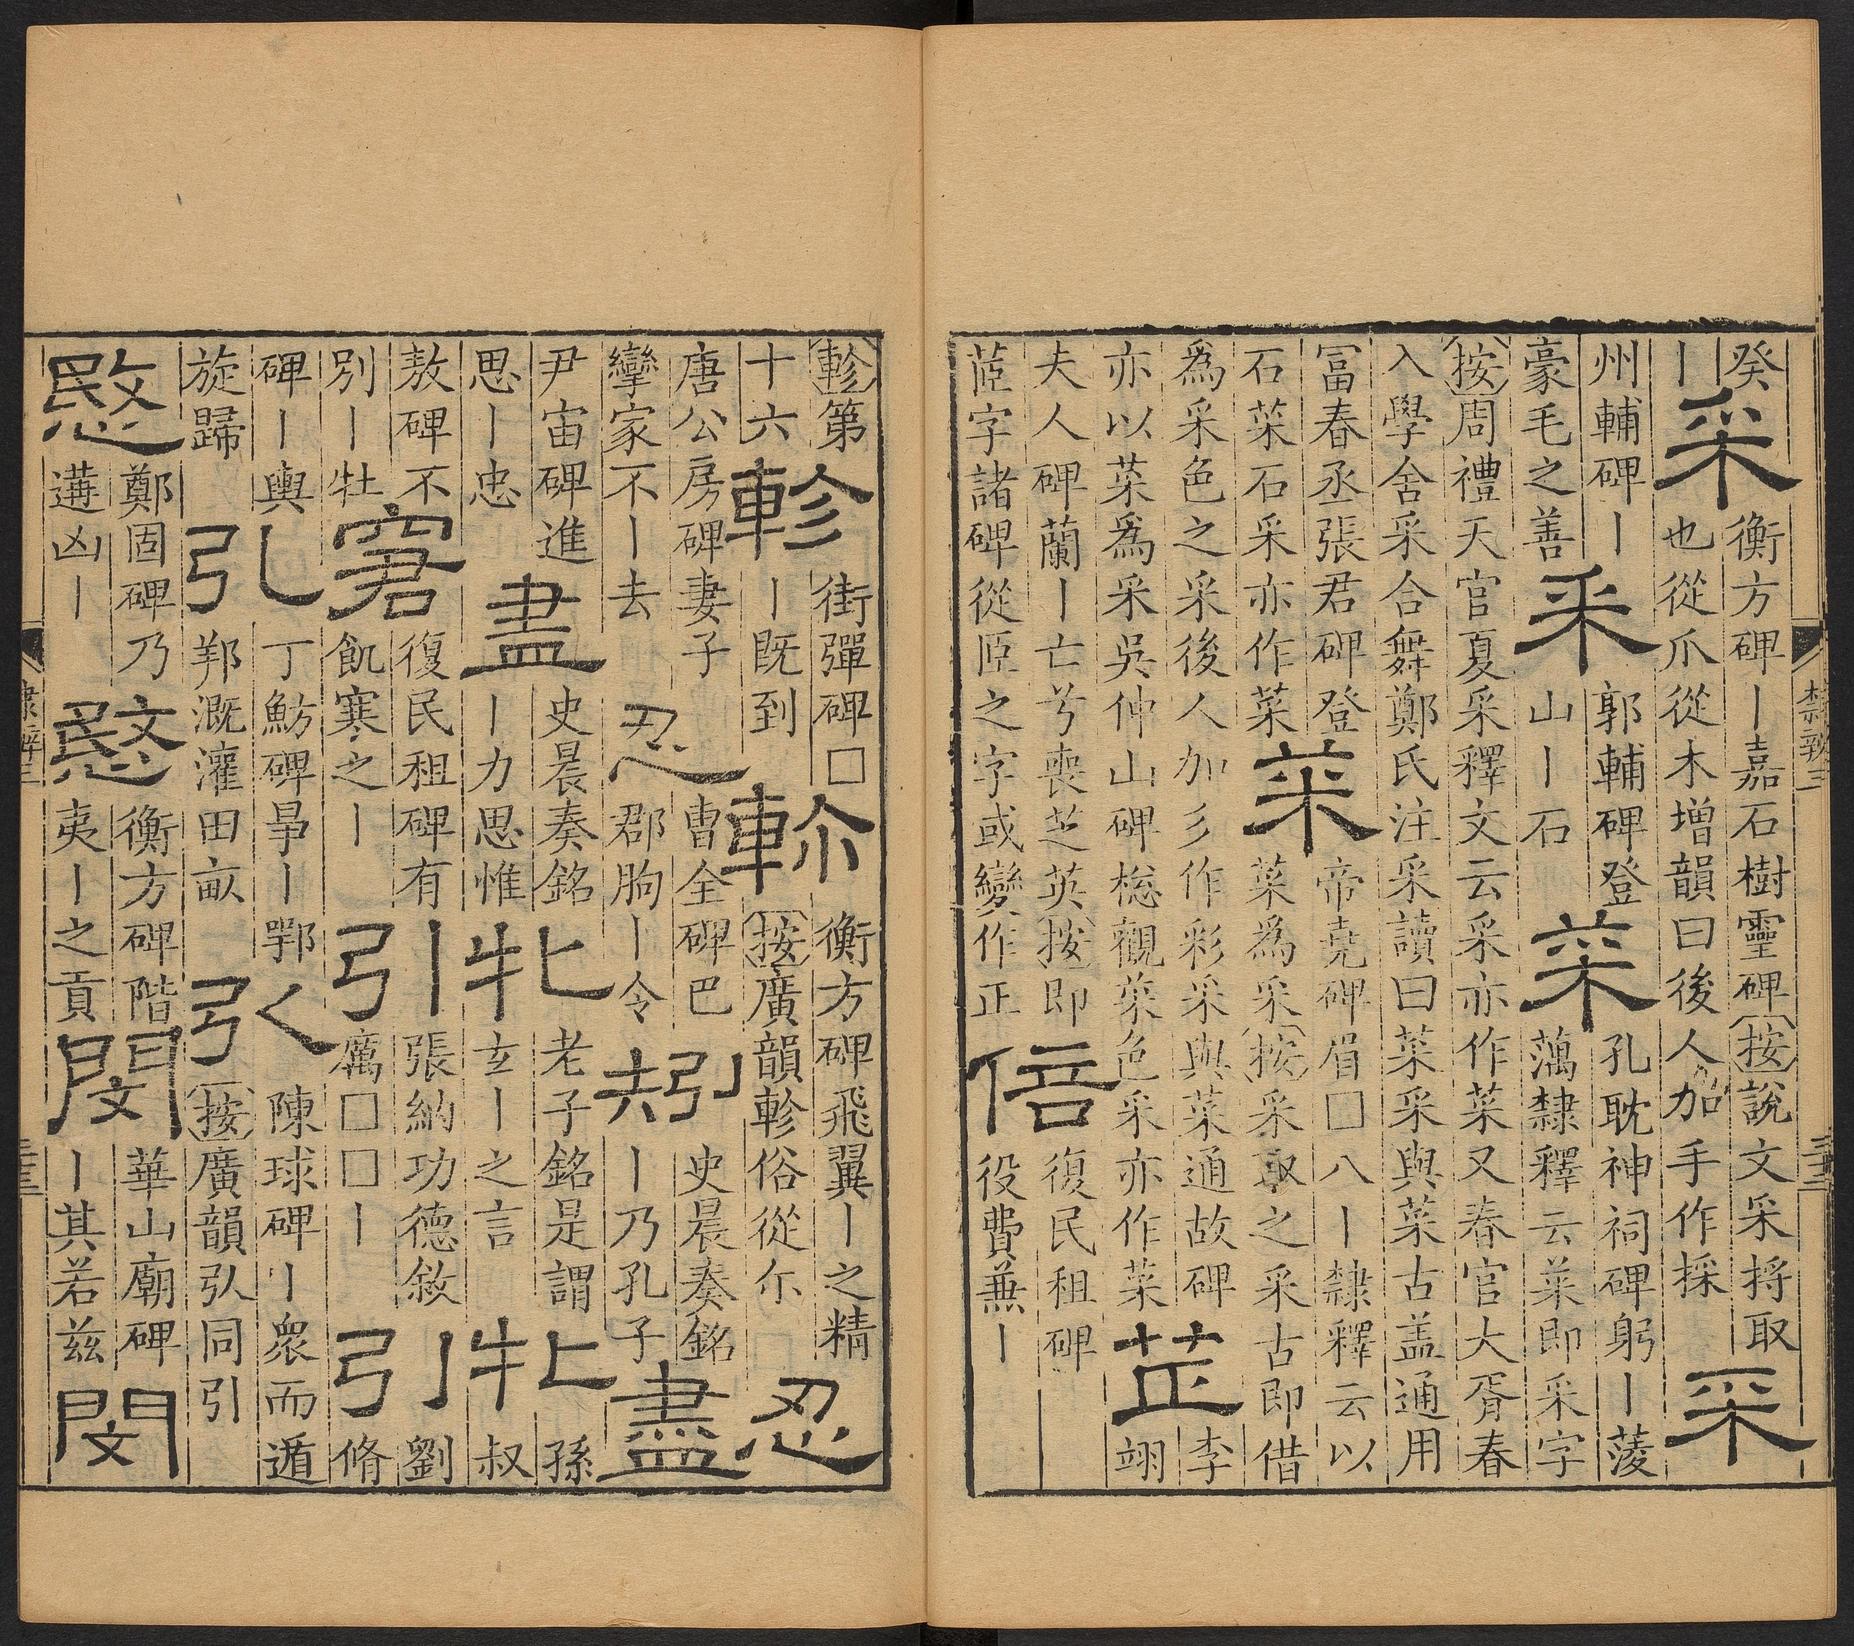 癸
丨
采
衡方碑丨嘉石樹靈碑按說文采捋取
也從爪從木增韻曰後人加手作採
采
州輔碑丨
豪毛之善
采
郭輔碑登
山丨石
菜
孔耽神祠碑躬丨蔆
藕隸釋云菜即采字
按周禮天官夏采釋文云采亦作菜又春官大胥春
入學舍采合舞鄭氏注采讀曰菜采與菜古盖通用
冨春丞張君碑登
石菜石采亦作菜
菜
帝堯碑眉□八丨隸釋云以
菜爲采按采取之采古即借
爲采色之采後人加彡作彩采與菜通故碑
亦以菜爲采吳仲山碑緫觀菜色采亦作菜
芷
李
翊
夫人碑蘭丨亡兮喪芝英按即
茝字諸碑從𦣞之字或變作正
倍
復民租碑
役費兼丨
隸辨三
軫第
十六
軫
街彈碑□
丨既到
軫
衡方碑飛翼丨之精
按廣韻軫俗從尒
忍
唐公房碑妻子
攣家不丨去
忍
曹全碑巴
郡朐丨令
矧
史晨奏銘
丨乃孔子
盡
尹宙碑進
思丨忠
盡
史晨奏銘
丨力思惟
牝
老子銘是謂
玄丨之言
牝
孫
叔
敖碑不
別丨牡
窘
復民租碑有
飢寒之丨
引
張納功德敘
厲□□丨
引
劉
脩
碑丨輿
旋歸
引
丁魴碑丨
漑灌田畝
引
陳球碑丨衆而遁
按廣韻弘同引
愍
鄭固碑乃
遘凶丨
愍
衡方碑階
夷丨之貢
閔
華山廟碑
丨其若兹
閔
隸辨三